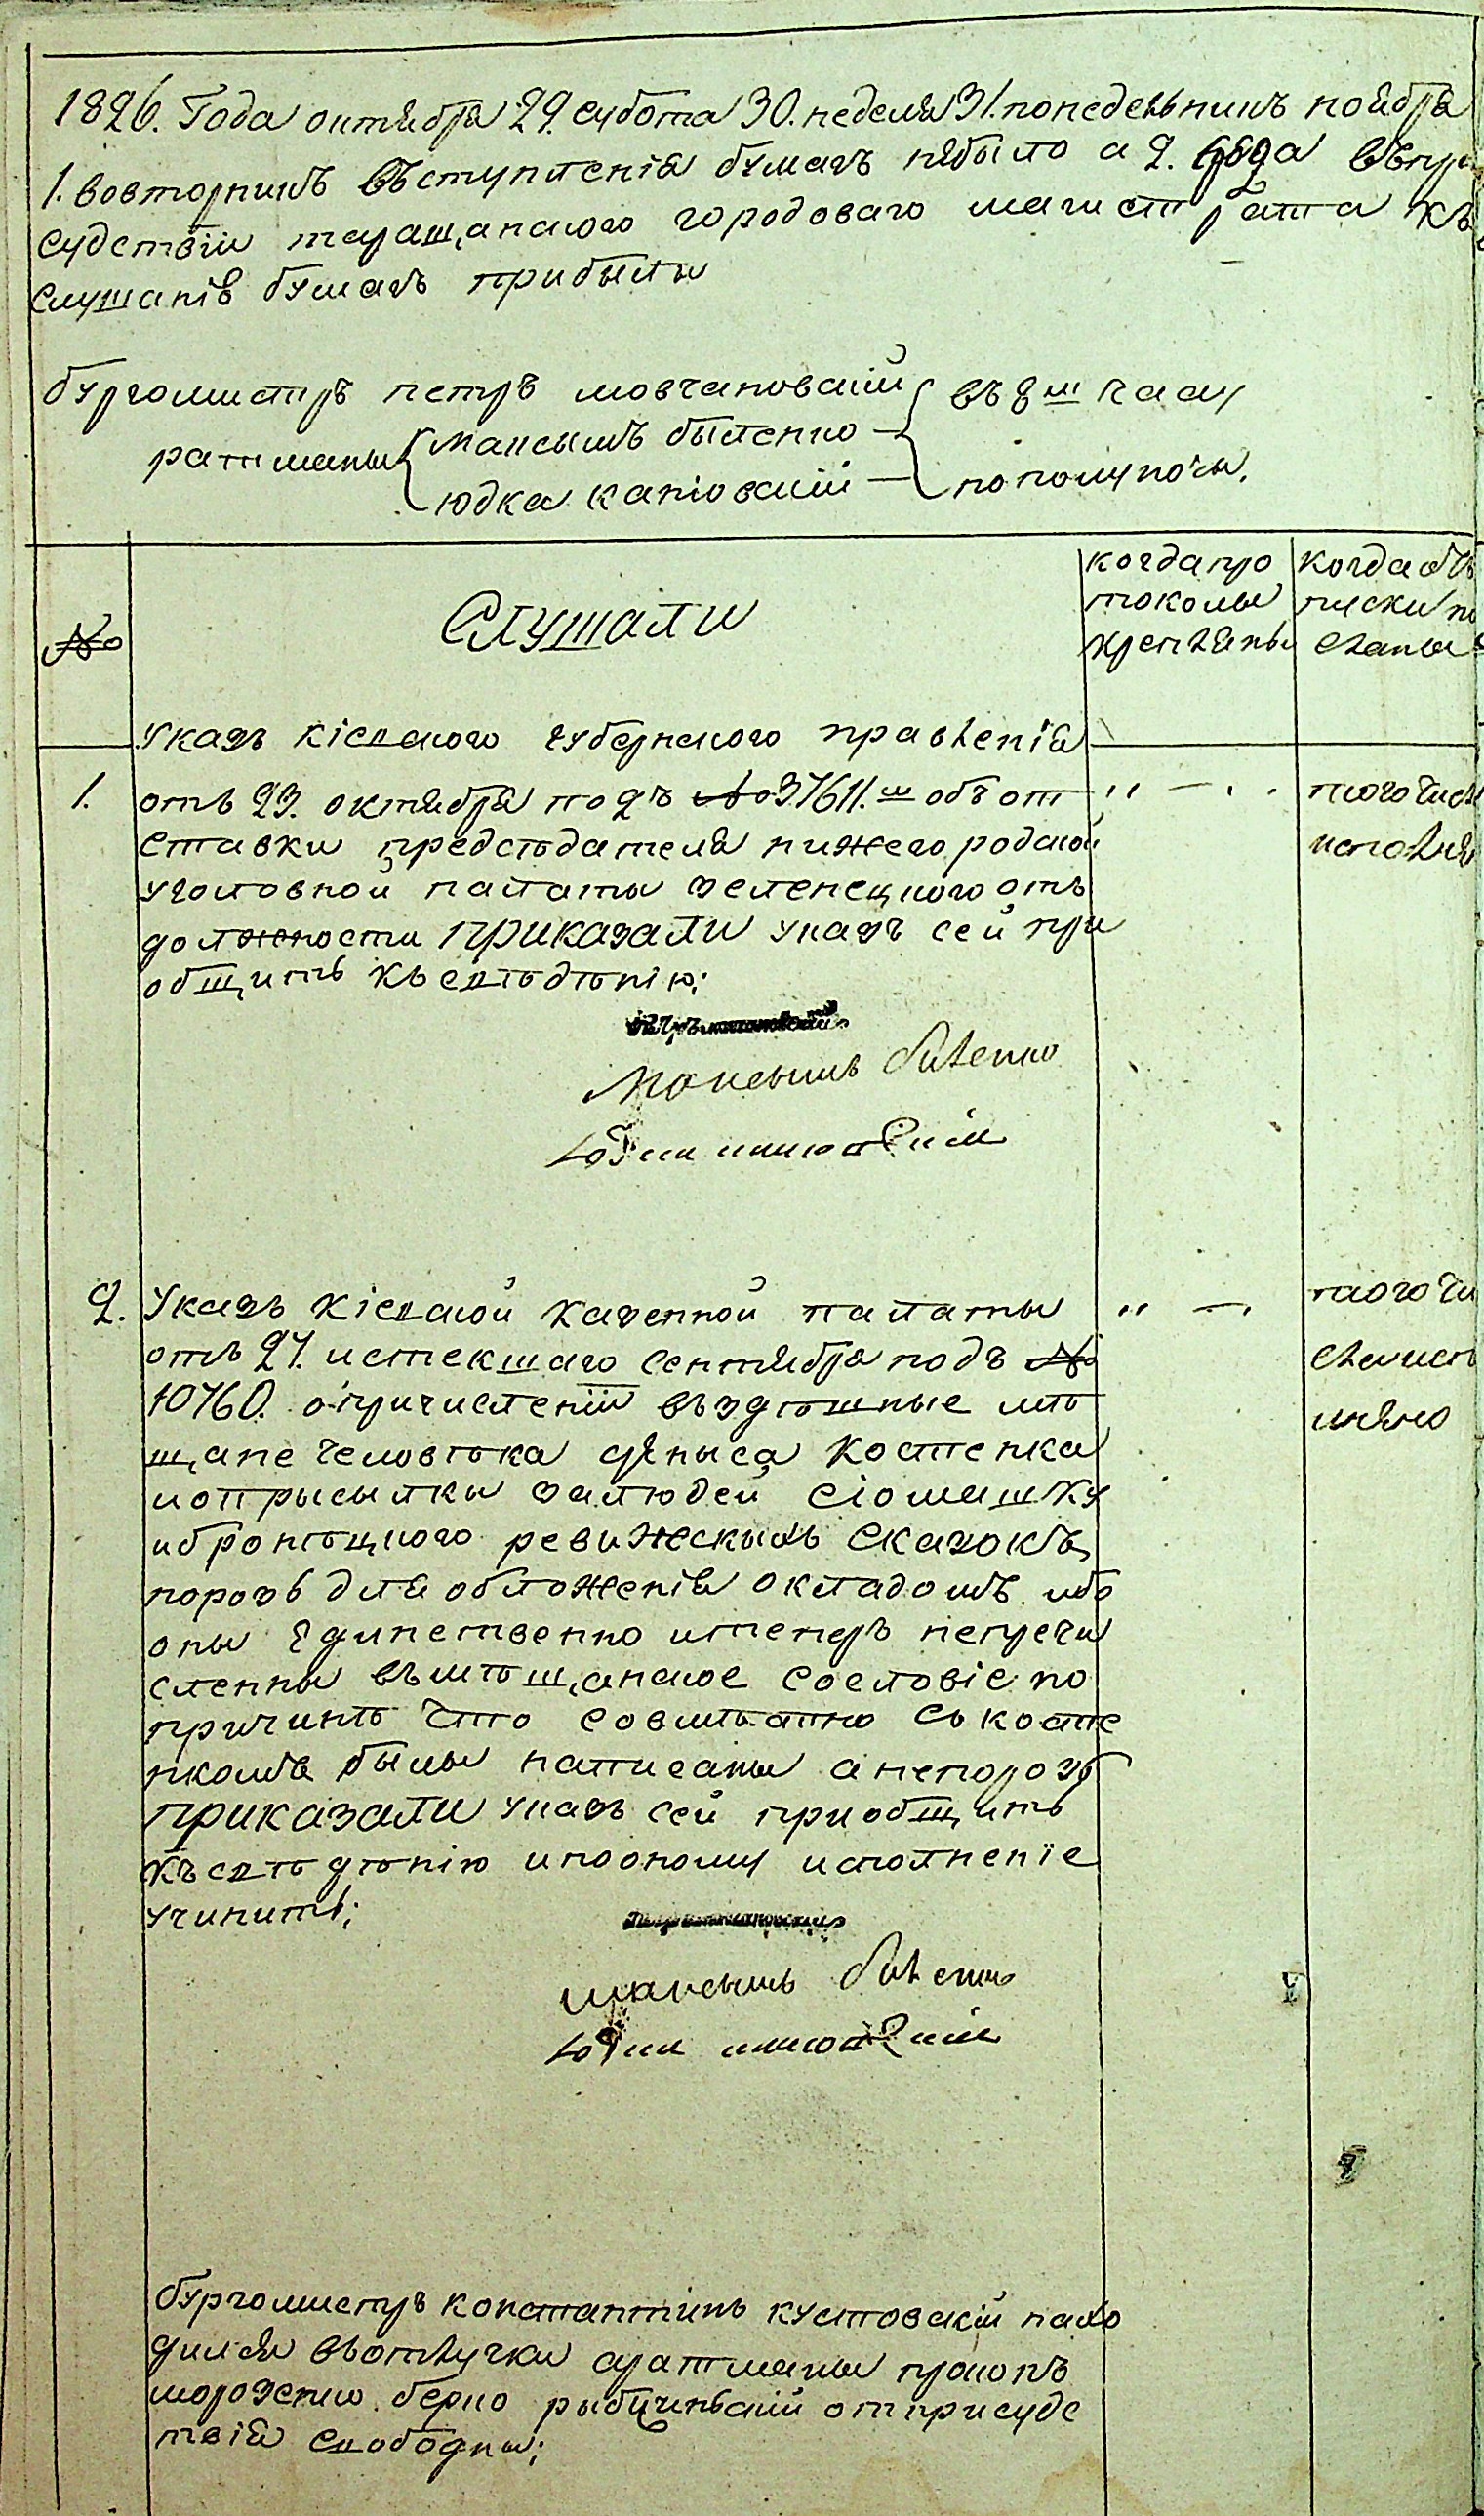 1826. Года октября 29. субота 30. неделя 31. понедельникъ ноября
1. вовторникъ въступленія бумагъ небыло а 2. среда въпри
судствіи таращанского городоваго магистрата къ
слушанію бумагъ прибыли
бургомистръ петръ мовчановскій въ 8 ш часу
ратманы максымъ быленко
юдка каніовскій пополуночы.
№ Слушали когдапро когда объ
токолы писки по
скреплены сланы
указъ кіевского губернского правленія
1. отъ 23. октября подъ № 37611. ш объ от „ — . . того числ
ставки предсѣдателя нижегородской исполня
уголовной палаты зеленецкого отъ
должности приказали указъ сей при
общить къ свѣдѣнію:
максымъ биленко
2. указъ кіевской казенной палаты „ — . того чи
отъ 27. истекшаго сентября подъ № сла исп
10760. о причисленіи въздѣшные мѣ лнено
щане человѣка дениса костенка
и оприсылки залюдей сіомашку
ибронѣцкого ревижескыхъ сказокъ,
порозъ для обложенія окладомъ ибо
оны единственно итеперъ непречи
сленны въмѣщанское сословіе по
причинѣ что совмѣстно съ косте
нкомъ былы написаны а непорозъ
приказали указъ сей приобщить
къ свѣдѣнію и пооному исполненіе
учинить;
максымъ биленко
бургомистръ константинъ кустовскій нахо
дился въотлучки а ратманы прокопъ
морозенко берко рыбчинскій отприсудс
твія свободны;